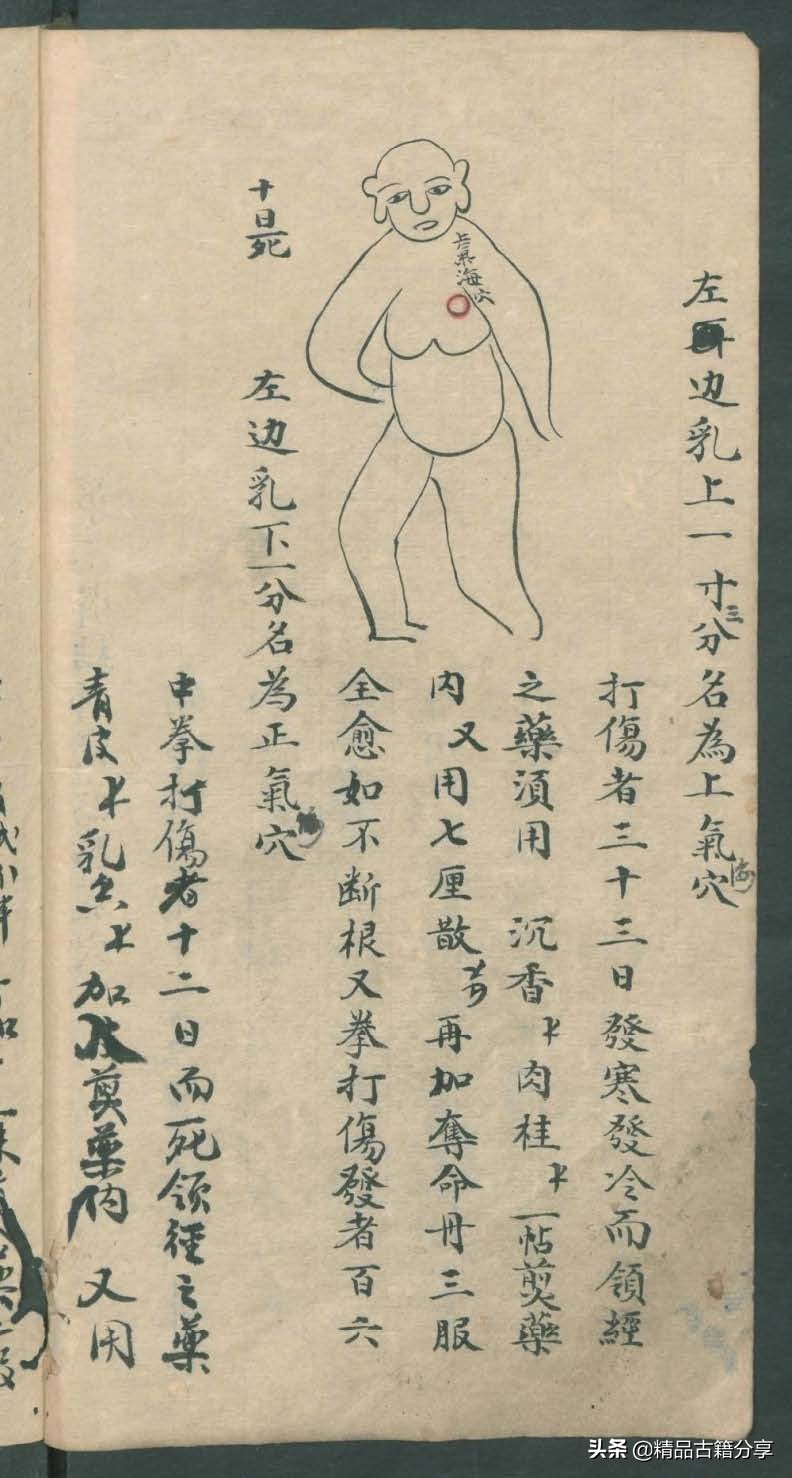 左边乳上一寸三分名為上氣海穴
打傷者三十三日發寒發冷而領經
之藥須用 沉香 肉桂 一帖煎藥
内又用七厘散 再加奪命丹三服
全愈如不断根又拳打傷發者百六
十日死
上氣海穴
左边乳下一分名為正氣穴
中拳打傷者十二日而死领徑之藥
青皮 乳香 加 煎藥内 又用
头条 @精品古籍分享